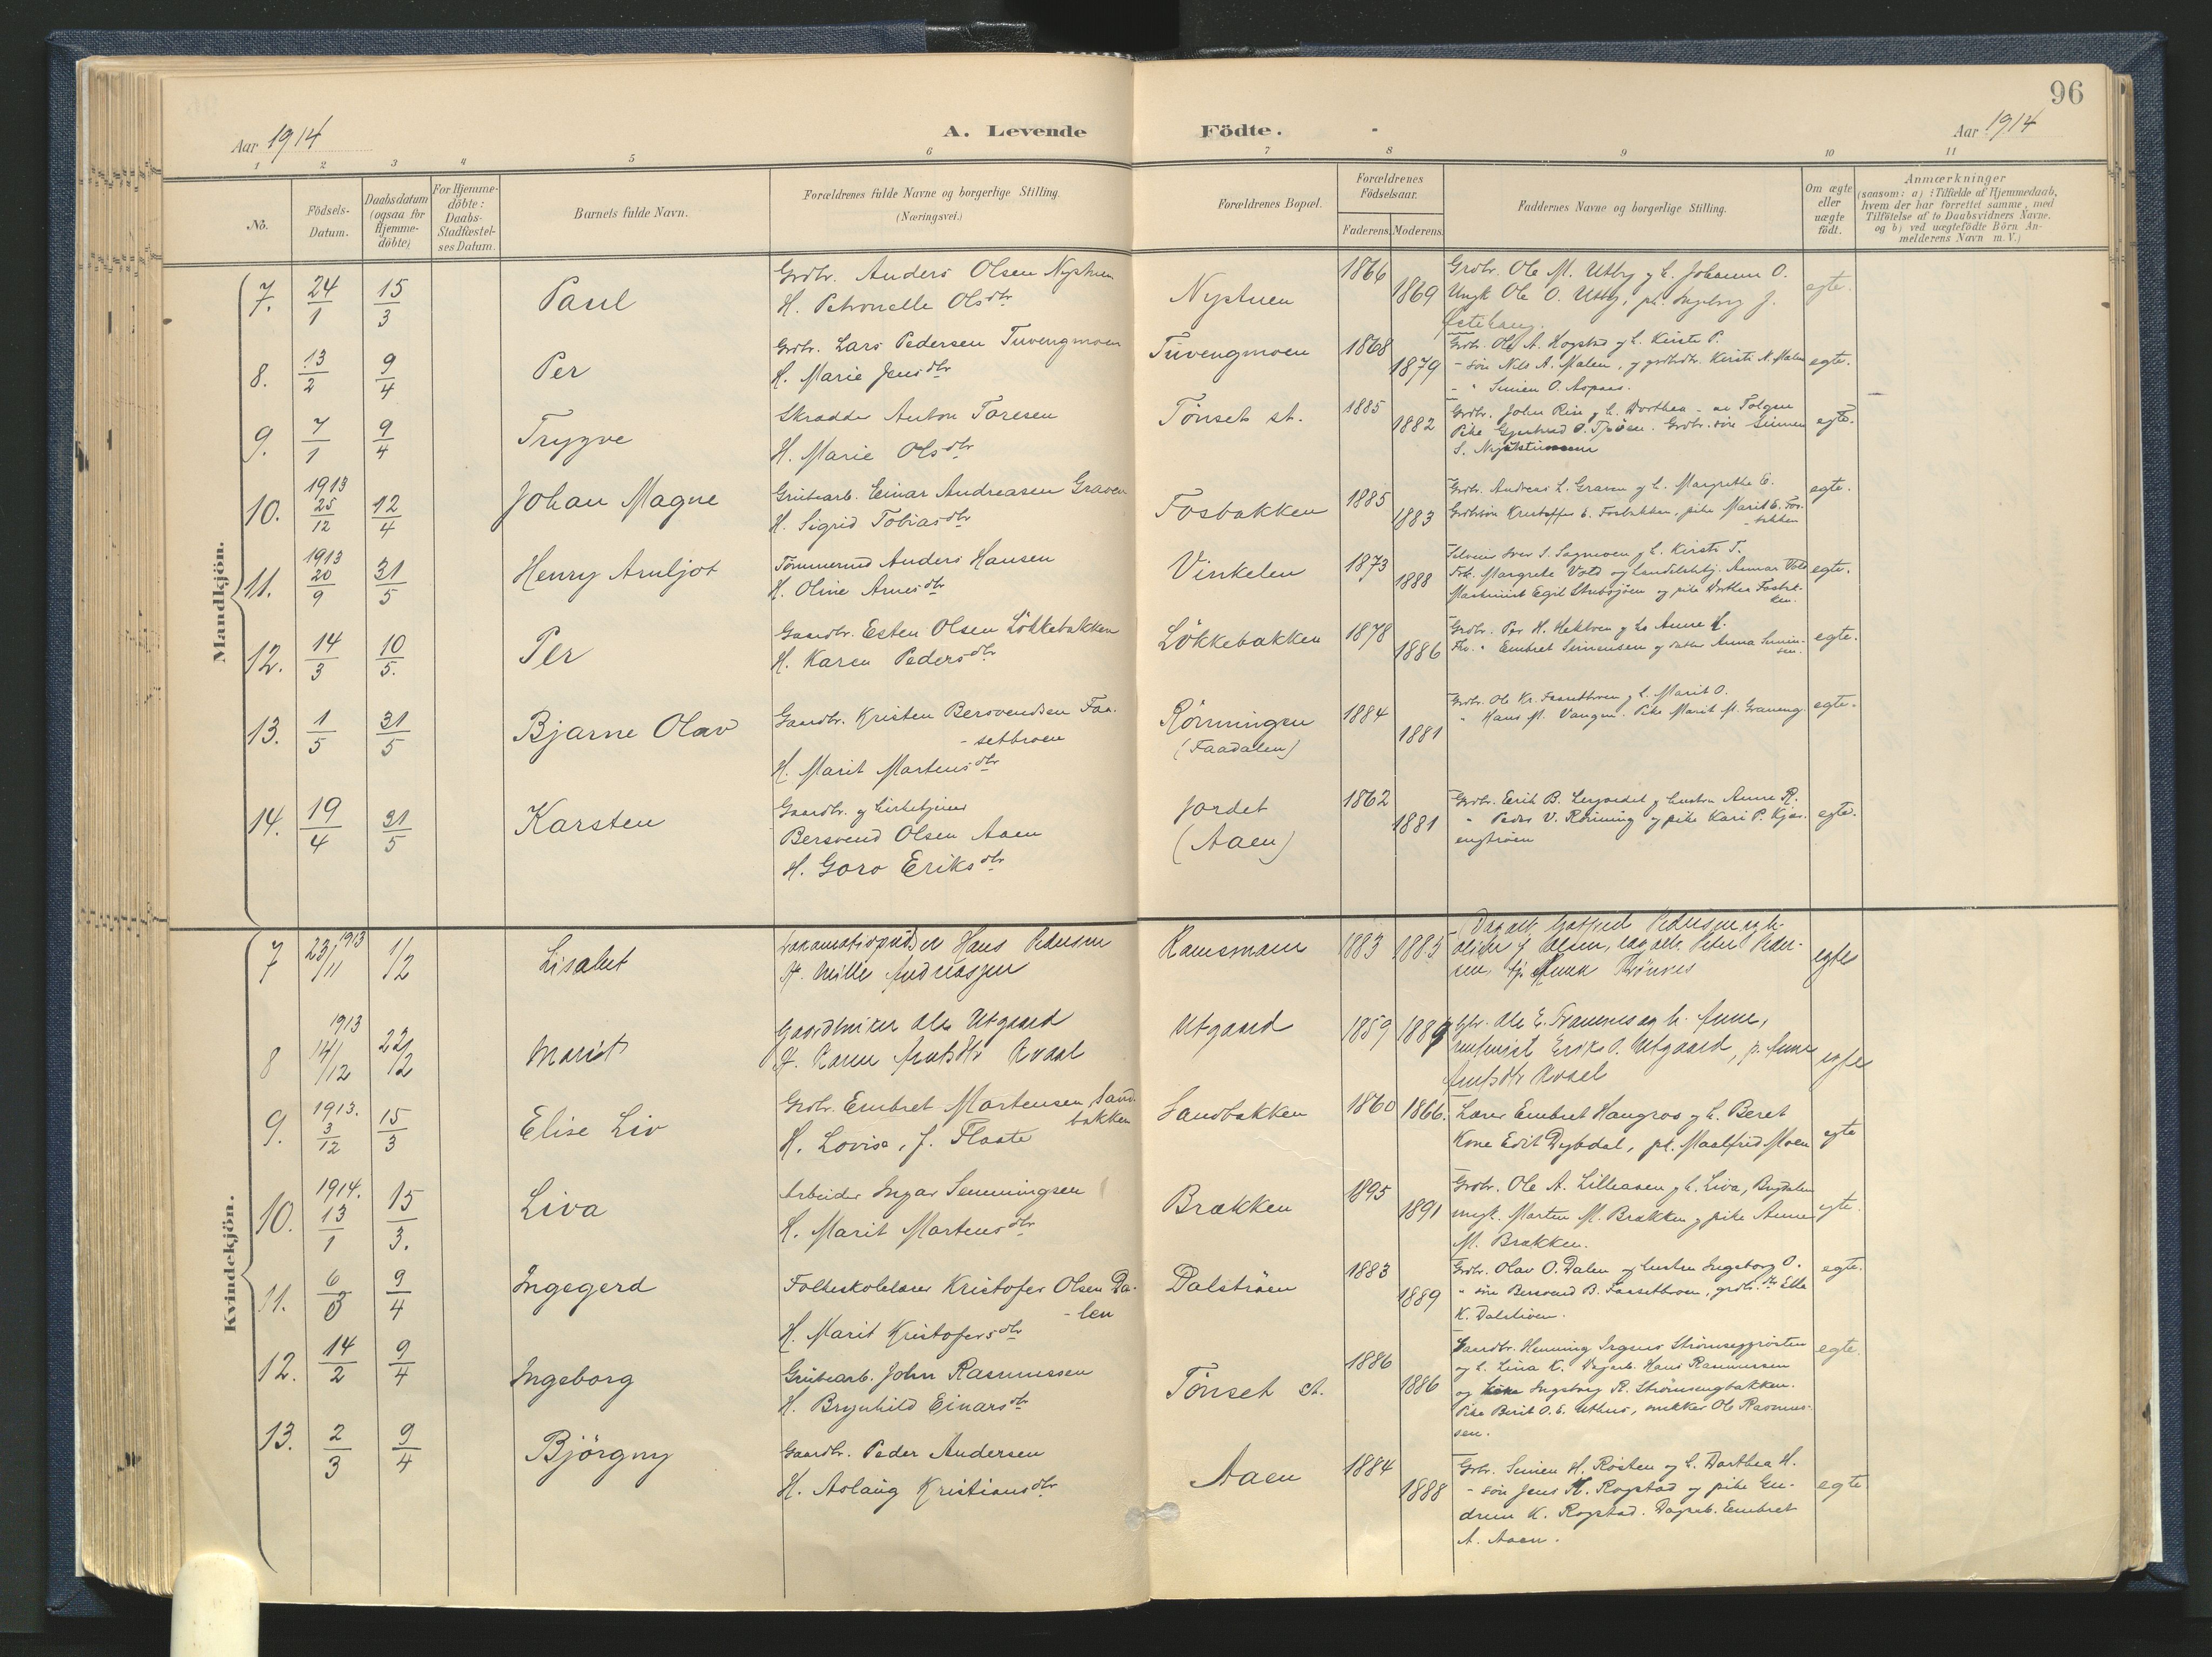 96
Aar 1914
A. Levende Födte.
Aar 1914
1 2 3 4 5 6 7 8 9 10 11
No.
Födsels-
Datum.
Daabsdatum
(ogsaa for
Hjemme-
döbte)
For Hjemme-
döbte:
Daabs-
Stadfæstel-
ses Datum.
Barnets fulde Navn.
Forældrenes fulde Navne og borgerlige Stilling.
(Næringsvei.)
Forældrenes Bopæl.
Forældrenes
Födselsaar.
Faderens. Moderens.
Faddernes Navne og borgerlige Stilling.
Om ægte
eller
uægte
födt.
Anmærkninger
(saasom: a) i Tilfælde af Hjemmedaab,
hvem der har forrettet samme, med
Tilföielse af to Daabsvidners Navne.
og b) ved uægtefödte Börn An-
melderens Navn m. V.)
Mandkjön.
7. 24/1 15/3 Paul
Grdbr. Anders Olsen Nystuen
H. Petronelle Olsdtr
Nystuen 1866 1869
Grdbr. Ole M. Utby g h. Johanna O.
Ungk Ole O. Utby, pi. Ingeborg J.
egte.
8. 13/2 9/4 Per
Grdbr. Lars Pedersen Tuvengmoen
H. Marie Jensdtr
Tuvengmoen 1868 1879
Grdbr. Ole A. Kogstad g h. Kirsti P.
- søn Nils A. Malen, g grdbrdtr. Kirsti N. Malen
- " Simen O. Aspaas.
egte.
9. 7/1 9/4 Trygve
Skrædder Anton Toresen
H. Marie Olsdtr
Tønset st. 1885 1882
Grdbr. John Rise g h. Dorthea - av Tolgen
Grdbr. søn Simen
egte.
10. 1913 25/12 12/4 Johan Magne
Grubearb. Einar Andreasen Graven
H. Sigrid Tobiasdtr
Fosbakken 1885 1883
Grdbr. Andreas L. Graven g h. Margrethe E.
Grdbrsøn Kristoffer E. Fosbakken, pike Marit E. Fos-
bakken
egte.
11. 1913 20/9 31/5 Henry Arnljot
Tømmermd Anders Hansen
H. Oline Arnesdtr
Vinkelen 1873 1888
Iver S. Sagmoen g h. Kirsti T.
Frk. Margrete Vold og handelsbtj. Annar Vold
Maskinist Egil Strubsjöen og pike Dorthea Fosbak-
ken.
egte.
12. 14/3 10/5. Per
Gaardbr. Esten Olsen Løkkebakken
H. Karen Pedersdtr
Løkkebakken 1878 1886
Grdbr. Per H.
" Embret Simensen g datter Anna Simen-
sen.
egte.
13. 1/5 31/5 Bjarne Olav
Gaardbr. Kristen Bersvendsen Faa-
-setbroen
H. Marit Martensdtr
Rønningen
(Faadalen)
1884 1881
Grdbr. Ole Kr. Faasetbroen g h. Marit O.
" Hans M. Vangen. Pike Marit M. Graneng.
egte.
14. 19/4 31/5 Karsten
Gaardbr. g kirketjener
Bersvend Olsen Aaen
H. Goro Eriksdtr
Jordet
(Aaen)
1862 1881
Grdbr. Erik B. g hustru Anne R.
" Peder V. Rønning g pike Kari P. Kjær-
engtrøen
egte.
Kvindekjön.
7 23/11 1913 1/2 Lisabet
Lokomotivpudser Hans Pedersen
H. Mille Andreassen
Ramsmoen 1883 1885
Dagarb. Gotfred Pedersen og h.
Olsen, dagarb. Peter Peder-
sen, tj. Anna Rønnes
egte
8 1913 14/12 22/2 Marit
Gaardbruker Ole Utgaard
H. Karen Arntsdtr Kvaal
Utgaard 1859 1889
Gbr. Ole E. Tramnes og h. Anne,
Erik O. Utgaard, p. Anne
Arntsdtr Kvael
egte
9. 1913. 3/12 15/3 Elise Liv
Grdbr. Embret Martensen Sand-
bakken
H. Lovise J. Flaate
Sandbakken 1860 1866.
Lærer Embret Haugros g h. Beret
Kone Edit Dybdal, pi. Maalfrid Moen
egte
10. 1914. 13/1 15/3. Liva
Arbeider Ingar Semmingsen
H. Marit Martensdtr
Brækken 1895 1891
Grdbr. Ole A. Lilleaaen g h. Liva, Brydalen
ungk. Marten M. Brækken g pike Anne
M. Brækken.
egte.
11. 6/3 9/4 Ingegerd
Folkeskolelærer Kristofer Olsen Da-
-len
H. Marit Kristofersdtr
Dalstrøen 1883 1889
Grdbr. Olav O. Dalen og hustru Ingeborg O.
" søn Bersvend B. Faasetbroen, grdbr.dtr Ella
K. Dalstrøen.
egte.
12. 14/2 9/4 Ingeborg
Grubearb. John Rasmussen
H. Brynhild Einarsdtr
Tønset st. 1886 1886
Gaardbr. Henning
og h. Lina K. Dagarb. Hans Rasmussen
og Ingeborg R. Strømsengbakken.
Pike Berit O. E. Uthus, snekker Ole Rasmus-
sen.
egte.
13. 2/3 9/4 Björgny
Gaardbr. Peder Andersen
H. Aslaug Kristiansdtr
Aaen 1884 1888
Grbr. Simen H. Røsten og h. Dorthea H.
- søn Jens K. Rogstad og pike En-
drun K. Rogstad. Dagarb. Embret
A. Aaen.
egte